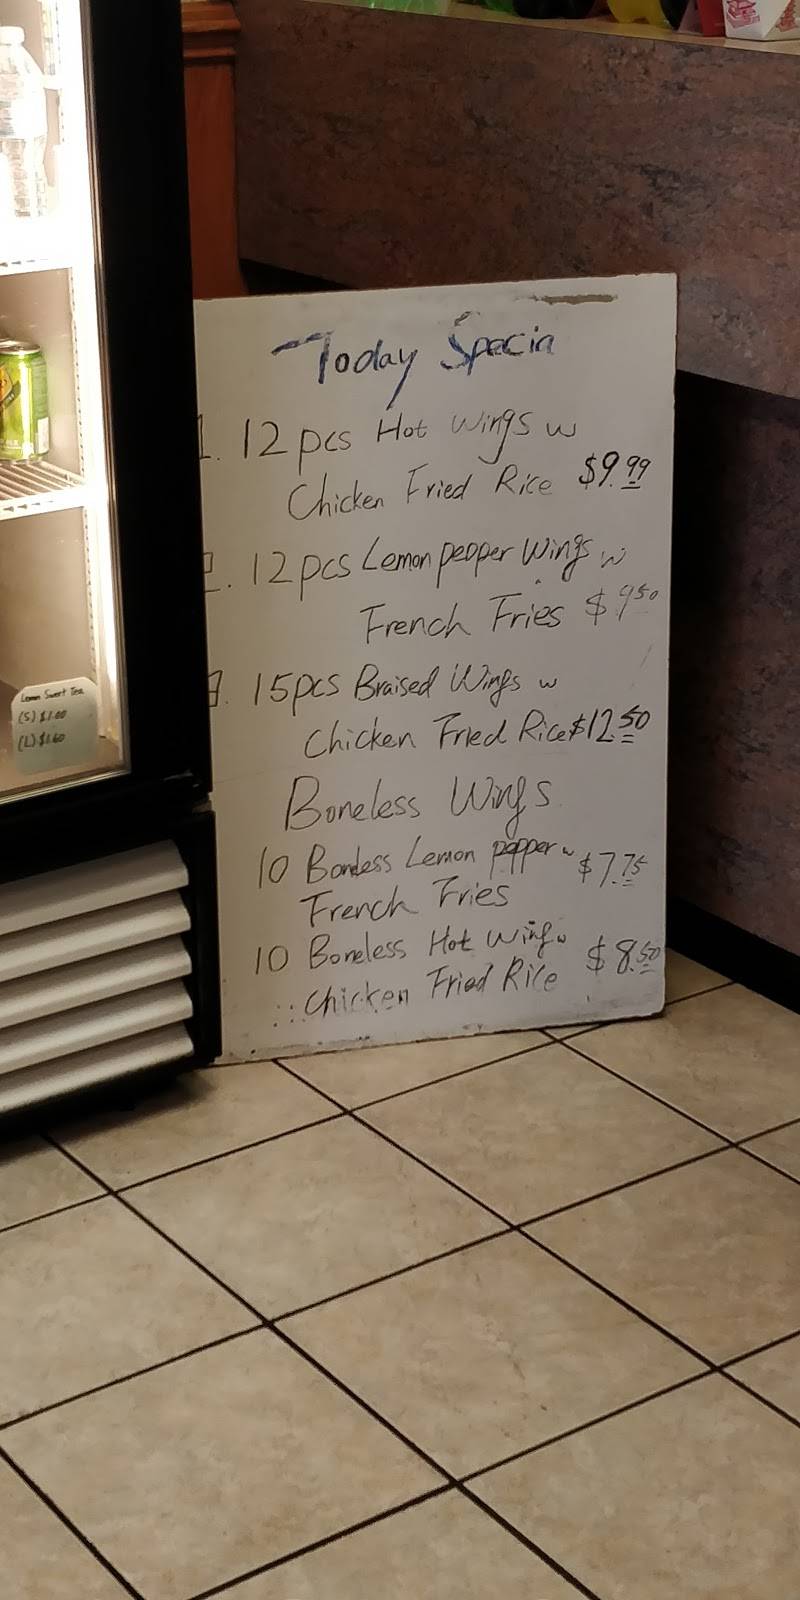 Today Specia
1. 12 pcs Hot Wings w
Chicken Fried Rice $9.99
2. 12 pcs Lemon pepper Wings w
French Fries $9.50
3. 15 pcs Braised Wings w
Chicken Fried Rice $12.50
Boneless Wings
10 Boneless Lemon pepper w $7.75
French Fries
10 Boneless Hot Wing w $8.50
Chicken Fried Rice
Lemon Sweet Tea
(S) $1.00
(L) $1.60